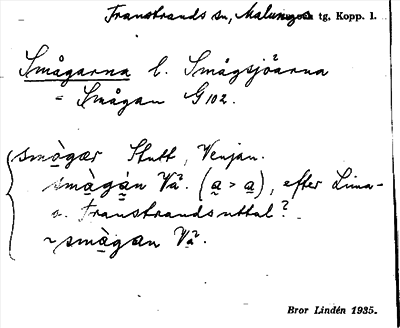 Transtrands sn, Malungs tg. Kopp. l.
Smågarna l. Smågsjöarna
= Smågan G 102.
smògær Stutt, Venjan.
smàgán Vå. (a > a), efter Lima-
o. Transtrandsuttal?
~ smàgan Vå.
Bror Lindén 1935.